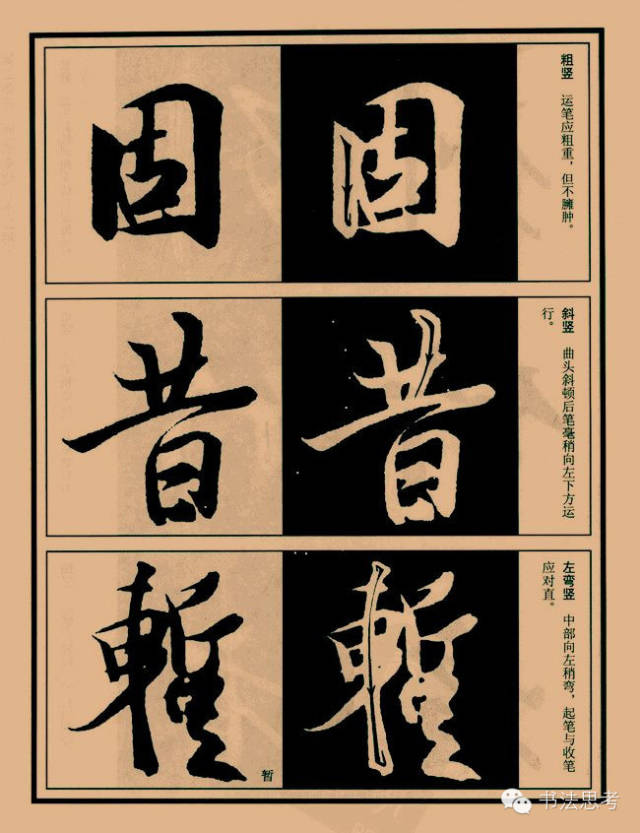 粗竖 运笔应粗重，但不臃肿。
固 固
斜竖 曲头斜顿后笔毫稍向左下方运
行。
昔 昔
左弯竖 中部向左稍弯，起笔与收笔
应对直。
暂
书法思考